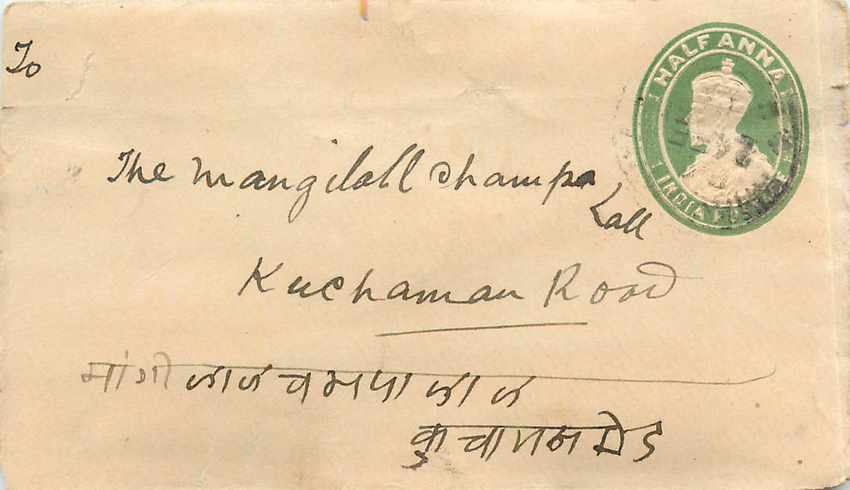 To
HALF ANNA
INDIA POSTAGE
The Mangilall Champa
Lall
Kuchaman Road
मांगीलालचमपालाल
कुचामनरोड